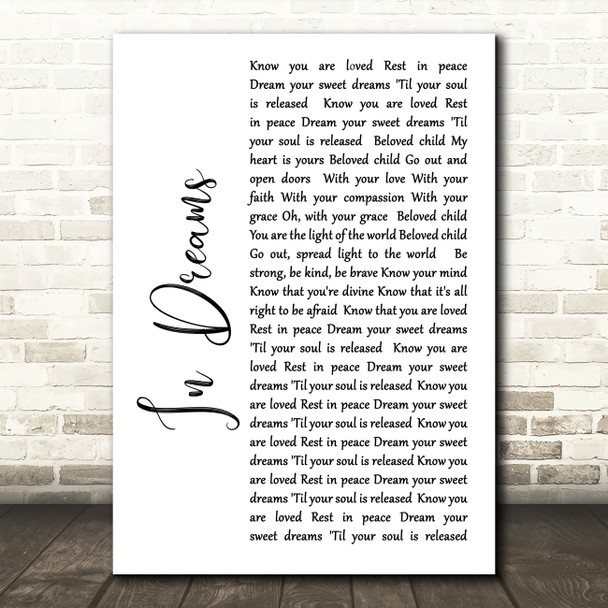 In Dreams
Know you are loved Rest in peace
Dream your sweet dreams 'Til your soul
is released Know you are loved Rest
in peace Dream your sweet dreams 'Til
your soul is released Beloved child My
heart is yours Beloved child Go out and
open doors With your love With your
faith With your compassion With your
grace Oh, with your grace Beloved child
You are the light of the world Beloved child
Go out, spread light to the world Be
strong, be kind, be brave Know your mind
Know that you're divine Know that it's all
right to be afraid Know that you are loved
Rest in peace Dream your sweet dreams
'Til your soul is released Know you are
loved Rest in peace Dream your sweet
dreams 'Til your soul is released Know you
are loved Rest in peace Dream your sweet
dreams 'Til your soul is released Know you
are loved Rest in peace Dream your sweet
dreams 'Til your soul is released Know you
are loved Rest in peace Dream your sweet
dreams 'Til your soul is released Know you
are loved Rest in peace Dream your
sweet dreams 'Til your soul is released